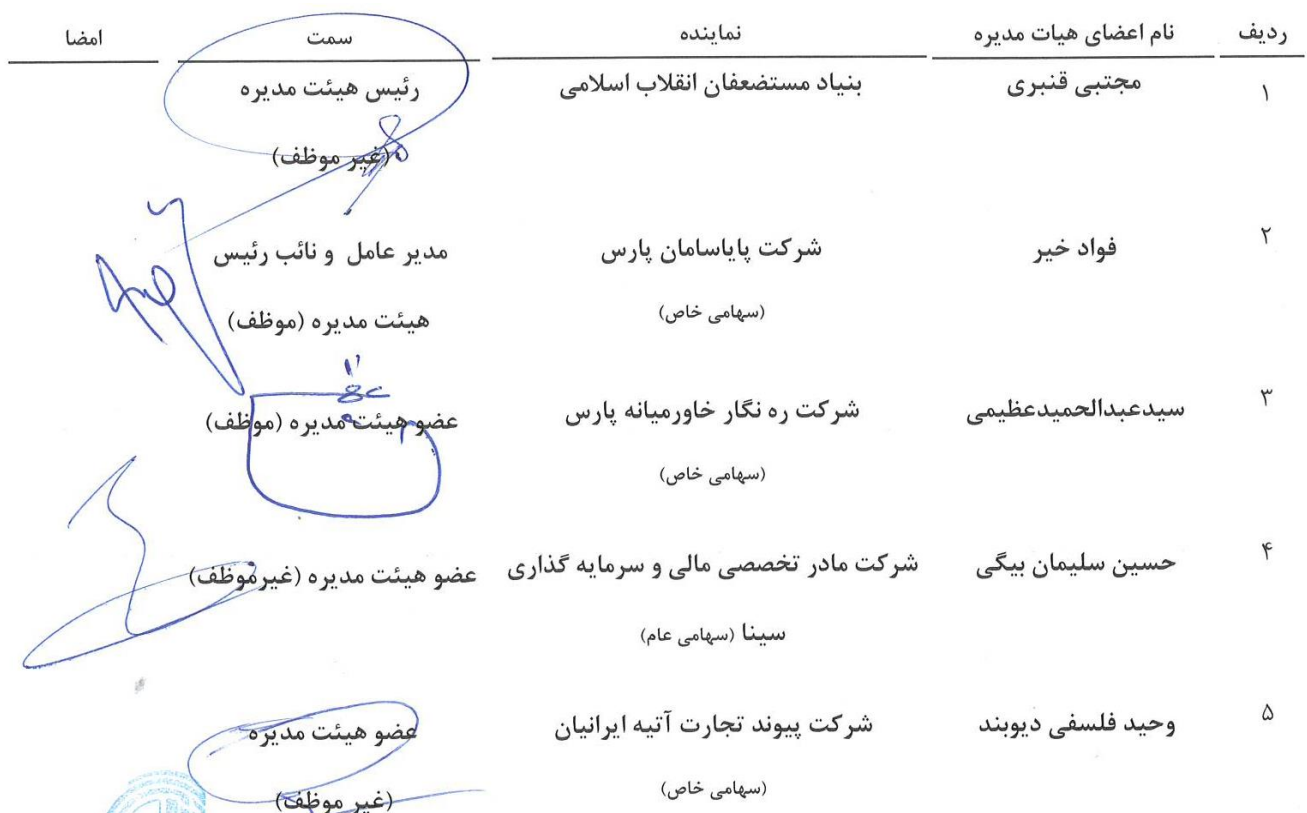 ردیف نام اعضای هیات مدیره نماینده سمت امضا
۱ مجتبی قنبری بنیاد مستضعفان انقلاب اسلامی رئیس هیئت مدیره
(غیر موظف)
۲ فواد خیر شرکت پایاسامان پارس مدیر عامل و نائب رئیس
(سهامی خاص) هیئت مدیره (موظف)
۳ سیدعبدالحمیدعظیمی شرکت ره نگار خاورمیانه پارس عضو هیئت مدیره (موظف)
(سهامی خاص)
۴ حسین سلیمان بیگی شرکت مادر تخصصی مالی و سرمایه گذاری عضو هیئت مدیره (غیرموظف)
سینا (سهامی عام)
۵ وحید فلسفی دیوبند شرکت پیوند تجارت آتیه ایرانیان عضو هیئت مدیره
(سهامی خاص) (غیر موظف)